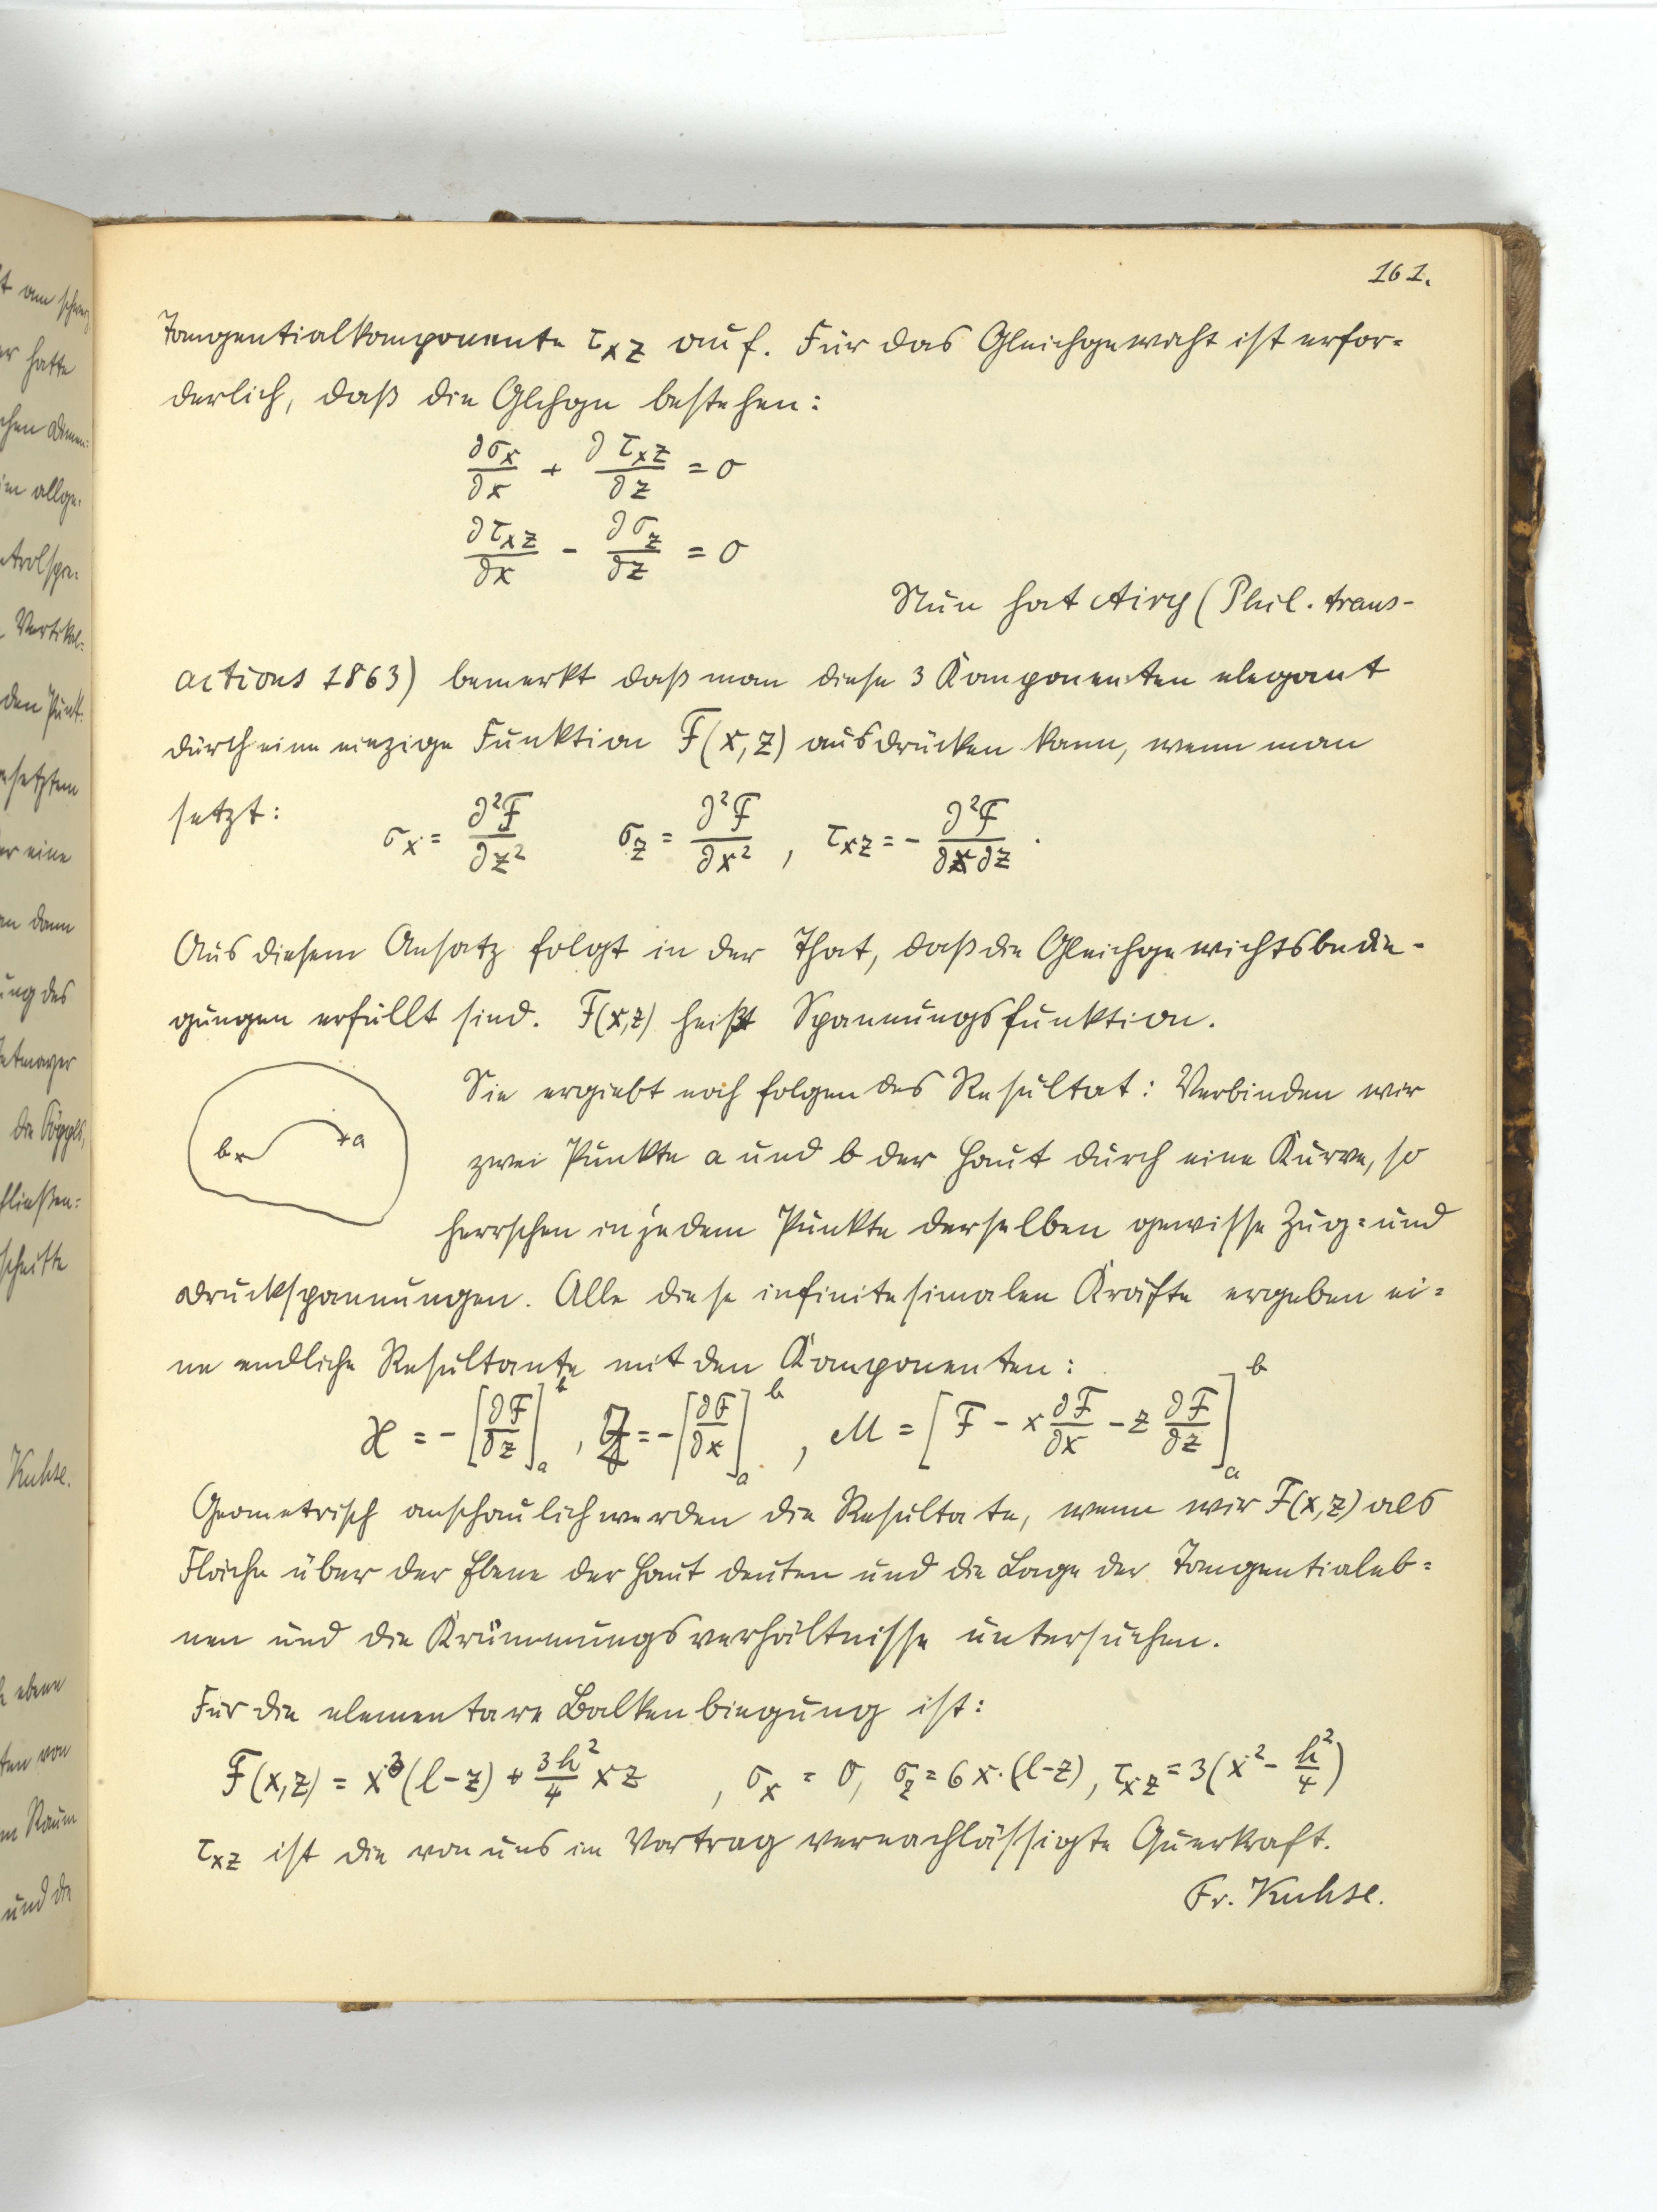 161.
Tangentialkomponente τxz auf. Für das Gleichgewicht ist erfor=
derlich, daß die Glchgn bestehen:
∂σx/∂x + ∂τxz/∂z = 0
∂τxz/∂x - ∂σz/∂z = 0
Nun hat Airy (Phil. trans-
actions 1863) bemerkt daß man diese 3 Komponenten elegant
durch eine einzige Funktion F(x,z) ausdrücken kann, wenn man
setzt: σx = ∂²F/∂z² σz = ∂²F/∂x² , τxz = - ∂²F/∂x∂z .
Aus diesem Ansatz folgt in der That, daß die Gleichgewichtsbedin-
gungen erfüllt sind. F(x,z) heißt Spannungsfunktion.
Sie ergiebt noch folgendes Resultat: Verbinden wir
b a
zwei Punkte a und b der Haut durch eine Kurve, so
herrschen in jedem Punkte derselben gewisse Zug= und
Druckspannungen. Alle diese infinitesimalen Kräfte ergeben ei=
ne endliche Resultante mit den Komponenten:
X = - [∂F/∂z]ₐᵇ , Z = - [∂F/∂x]ₐᵇ , M = [F - x ∂F/∂x - z ∂F/∂z]ₐᵇ
Geometrisch anschaulich werden die Resultate, wenn wir F(x,z) als
Fläche über der Ebene der Haut deuten und die Lage der Tangentialeb=
nen und die Krümmungsverhältnisse untersuchen.
Für die elementare Balkenbiegung ist:
F(x,z) = x³(l-z) + 3h²/4 xz , σx = 0, σz = 6x·(l-z), τxz = 3(x² - h²/4)
τxz ist die von uns im Vortrag vernachlässigte Querkraft.
Fr. Kuhse.